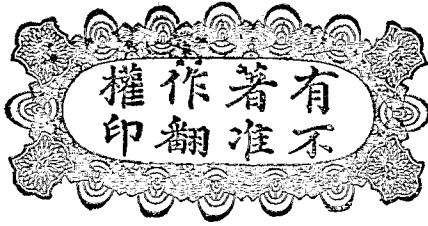 有著作權
不准翻印